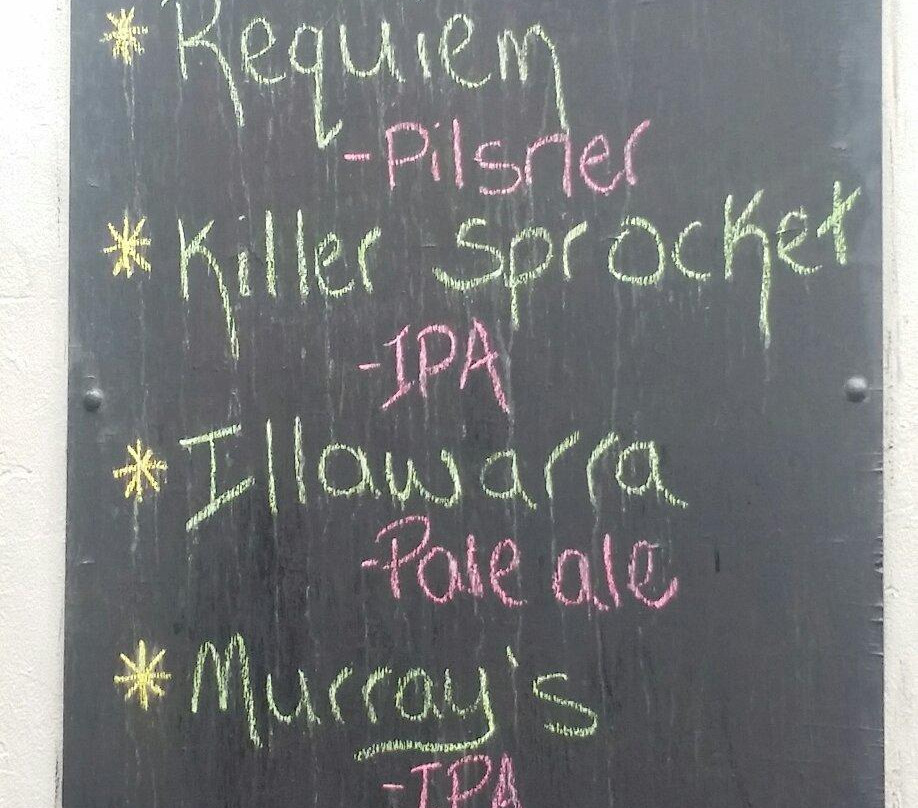 * Requiem
-Pilsner
* Killer Sprocket
-IPA
* Illawarra
-Pale ale
* Murray's
-IPA